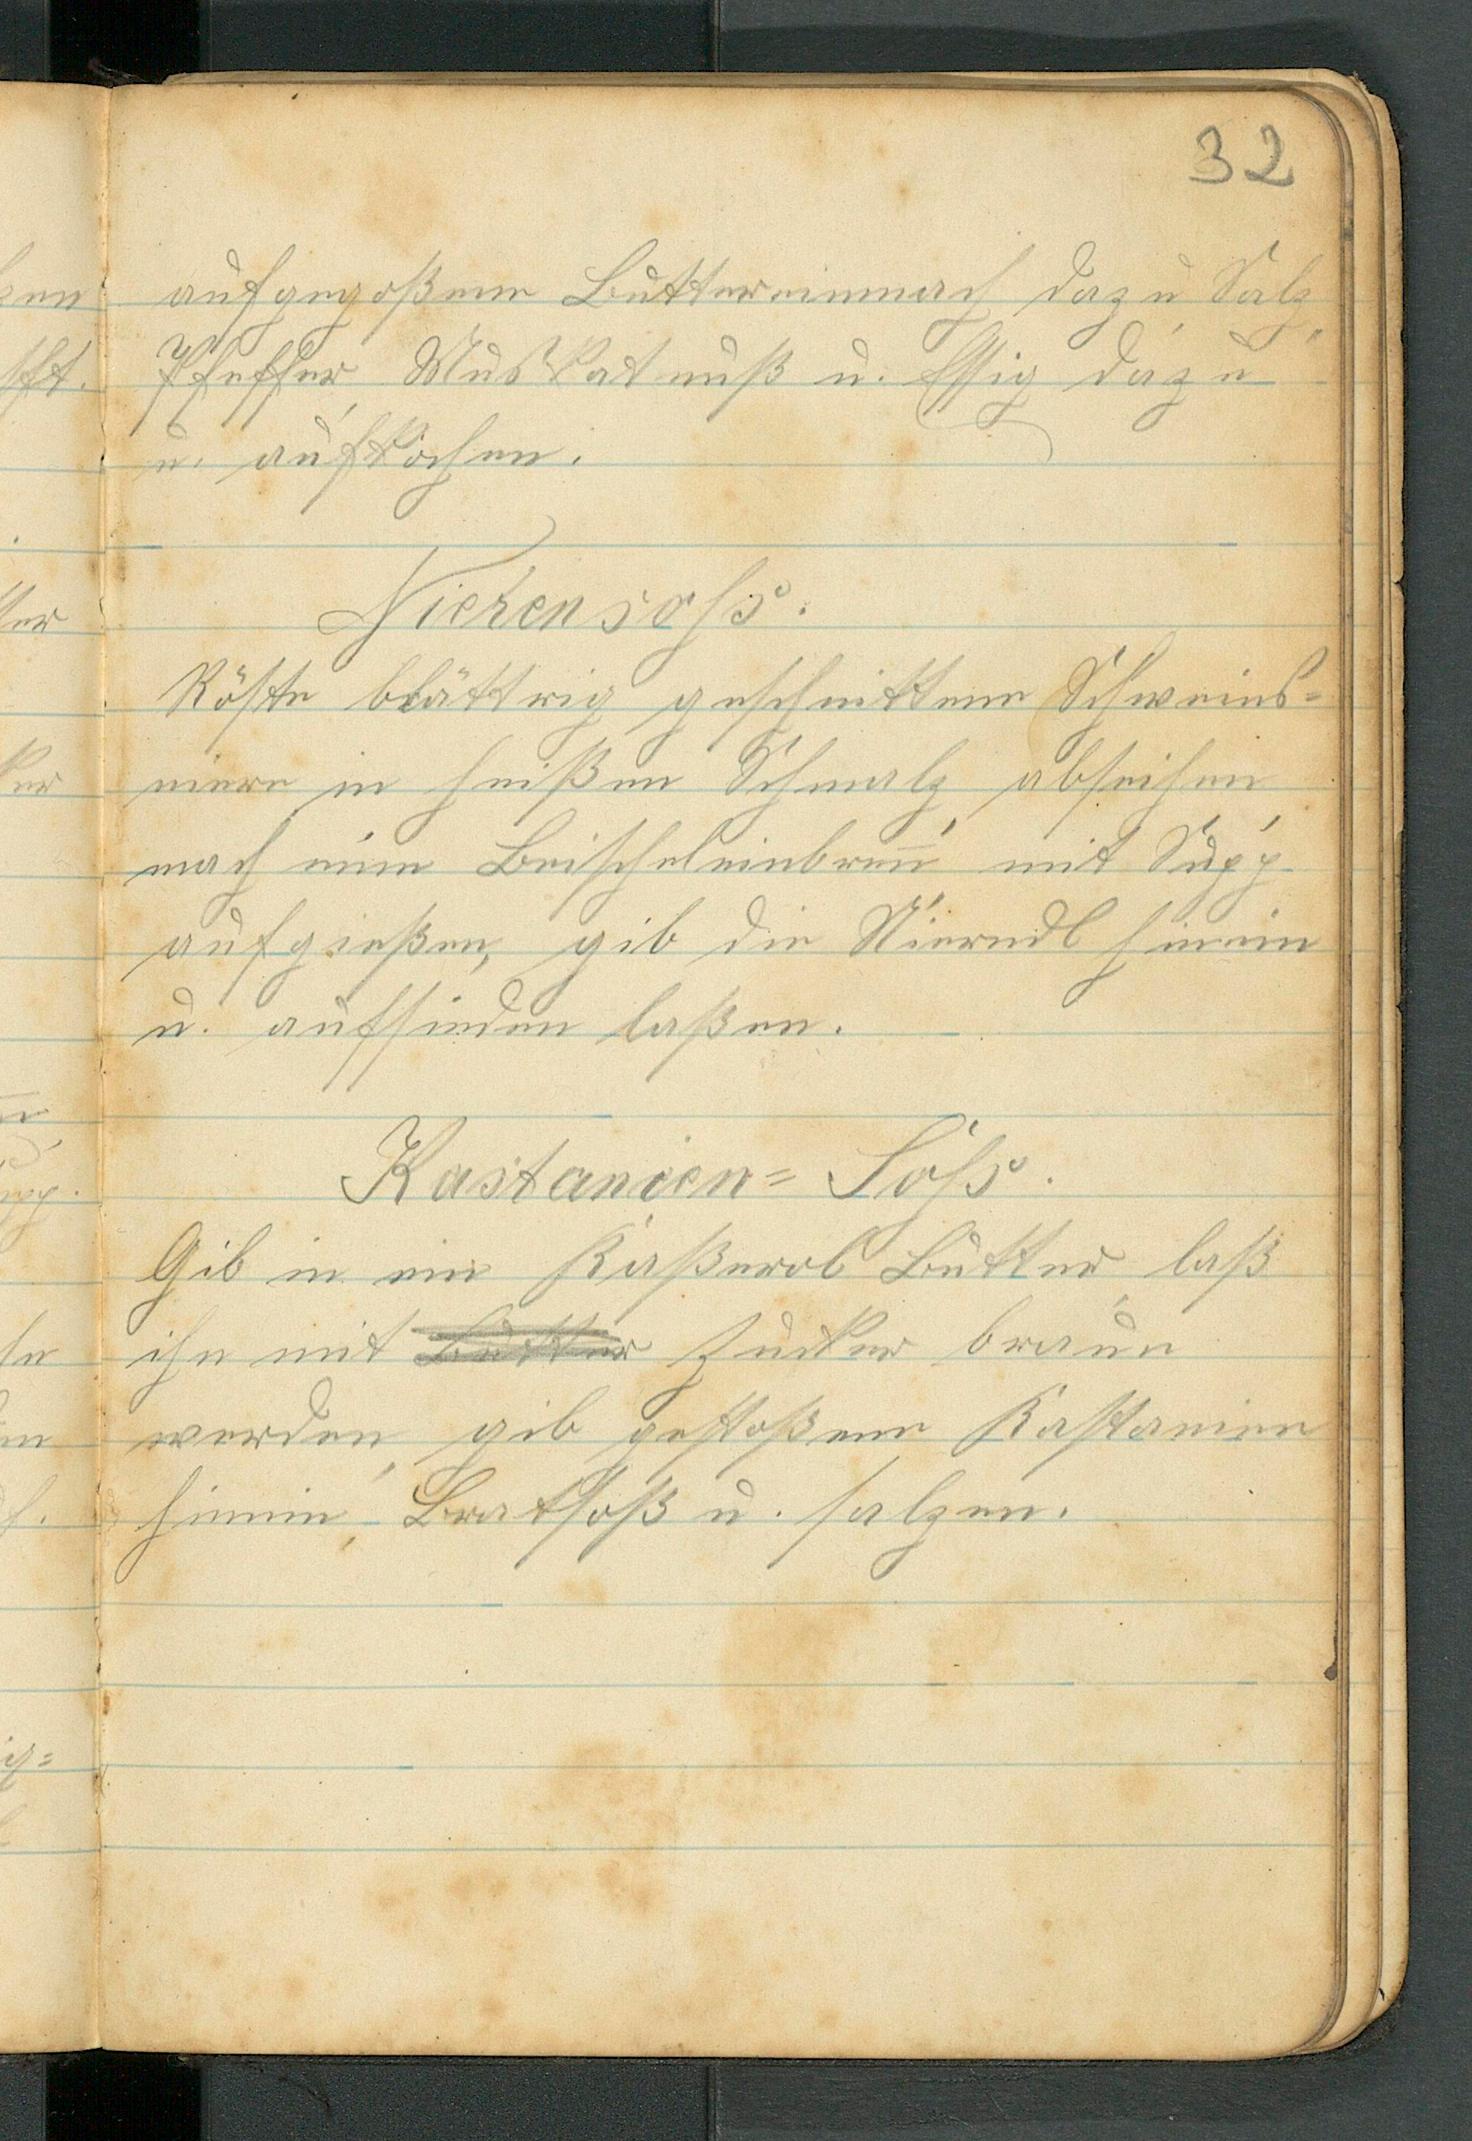 32
aufgegoßene Buttereinmach dazu Salz,
Pfeffer, Muskatnuß u. Essig dazu
u. aufkochen.
Nierensoss.
Röste blättrig geschnittene Schweins=
niere in heißen Schmalz, abseihen
mach eine Beischeleinbrenn, mit Supp
aufgießen, gib die Nierndl hinein
u. aufsieden laßen.
Kastanien= Soss.
Gib in ein Kaßerol Butter, laß
ihn mit Butter Zucker braun
werden, gib gestoßene Kastanien
hinein, Bratsoß u. salzen.